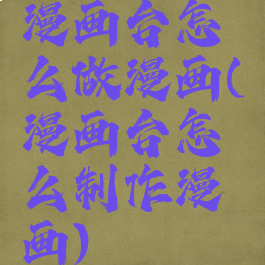 漫画台怎
么做漫画(
漫画台怎
么制作漫
画)